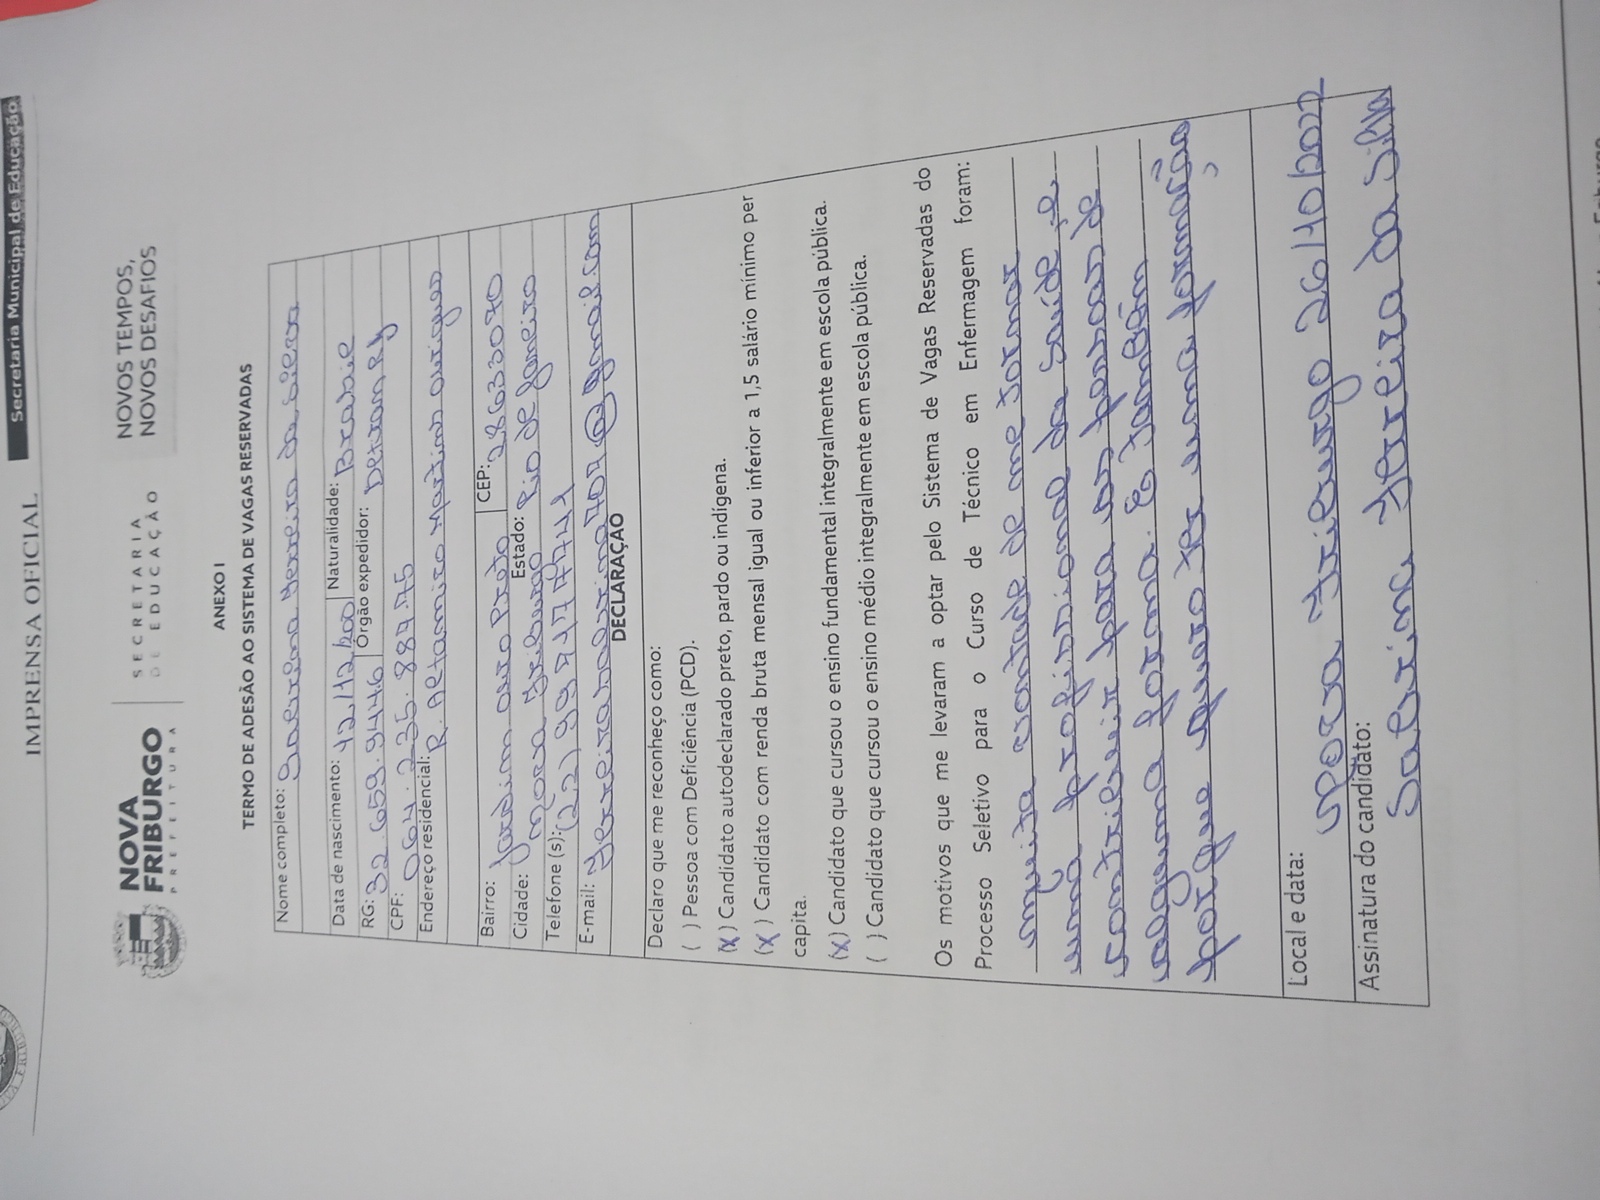 Secretaria Municipal de Educação
IMPRENSA OFICIAL
NOVA FRIBURGO
PREFEITURA
SECRETARIA
DE EDUCAÇÃO
NOVOS TEMPOS,
NOVOS DESAFIOS
ANEXO I
TERMO DE ADESÃO AO SISTEMA DE VAGAS RESERVADAS
Nome completo: Sabrina Ferreira da Silva
Data de nascimento: 12/12/200 Naturalidade: Brasil
RG: 32.659.944.6 Órgão expedidor: Detran RJ
CPF: 064.235.887.75
Endereço residencial: R. Altamiro Martins Ourigues
Bairro: Jardim Ouro Preto CEP: 28633070
Cidade: Nova Friburgo Estado: Rio de Janeiro
Telefone (s): (22) 997177741
E-mail: Ferreirasabrina707@gmail.com
DECLARAÇÃO
Declaro que me reconheço como:
( ) Pessoa com Deficiência (PCD).
(X) Candidato autodeclarado preto, pardo ou indígena.
(X) Candidato com renda bruta mensal igual ou inferior a 1,5 salário mínimo per
capita.
(X) Candidato que cursou o ensino fundamental integralmente em escola pública.
( ) Candidato que cursou o ensino médio integralmente em escola pública.
Os motivos que me levaram a optar pelo Sistema de Vagas Reservadas do
Processo Seletivo para o Curso de Técnico em Enfermagem foram:
muita vontade de me tornar
uma profissional da Saúde, e
contribuir para as pessoas de
alguma forma. E também
porque quero ter uma formação
Local e data: Nova Friburgo 26/10/2022
Assinatura do candidato: Sabrina Ferreira da Silva